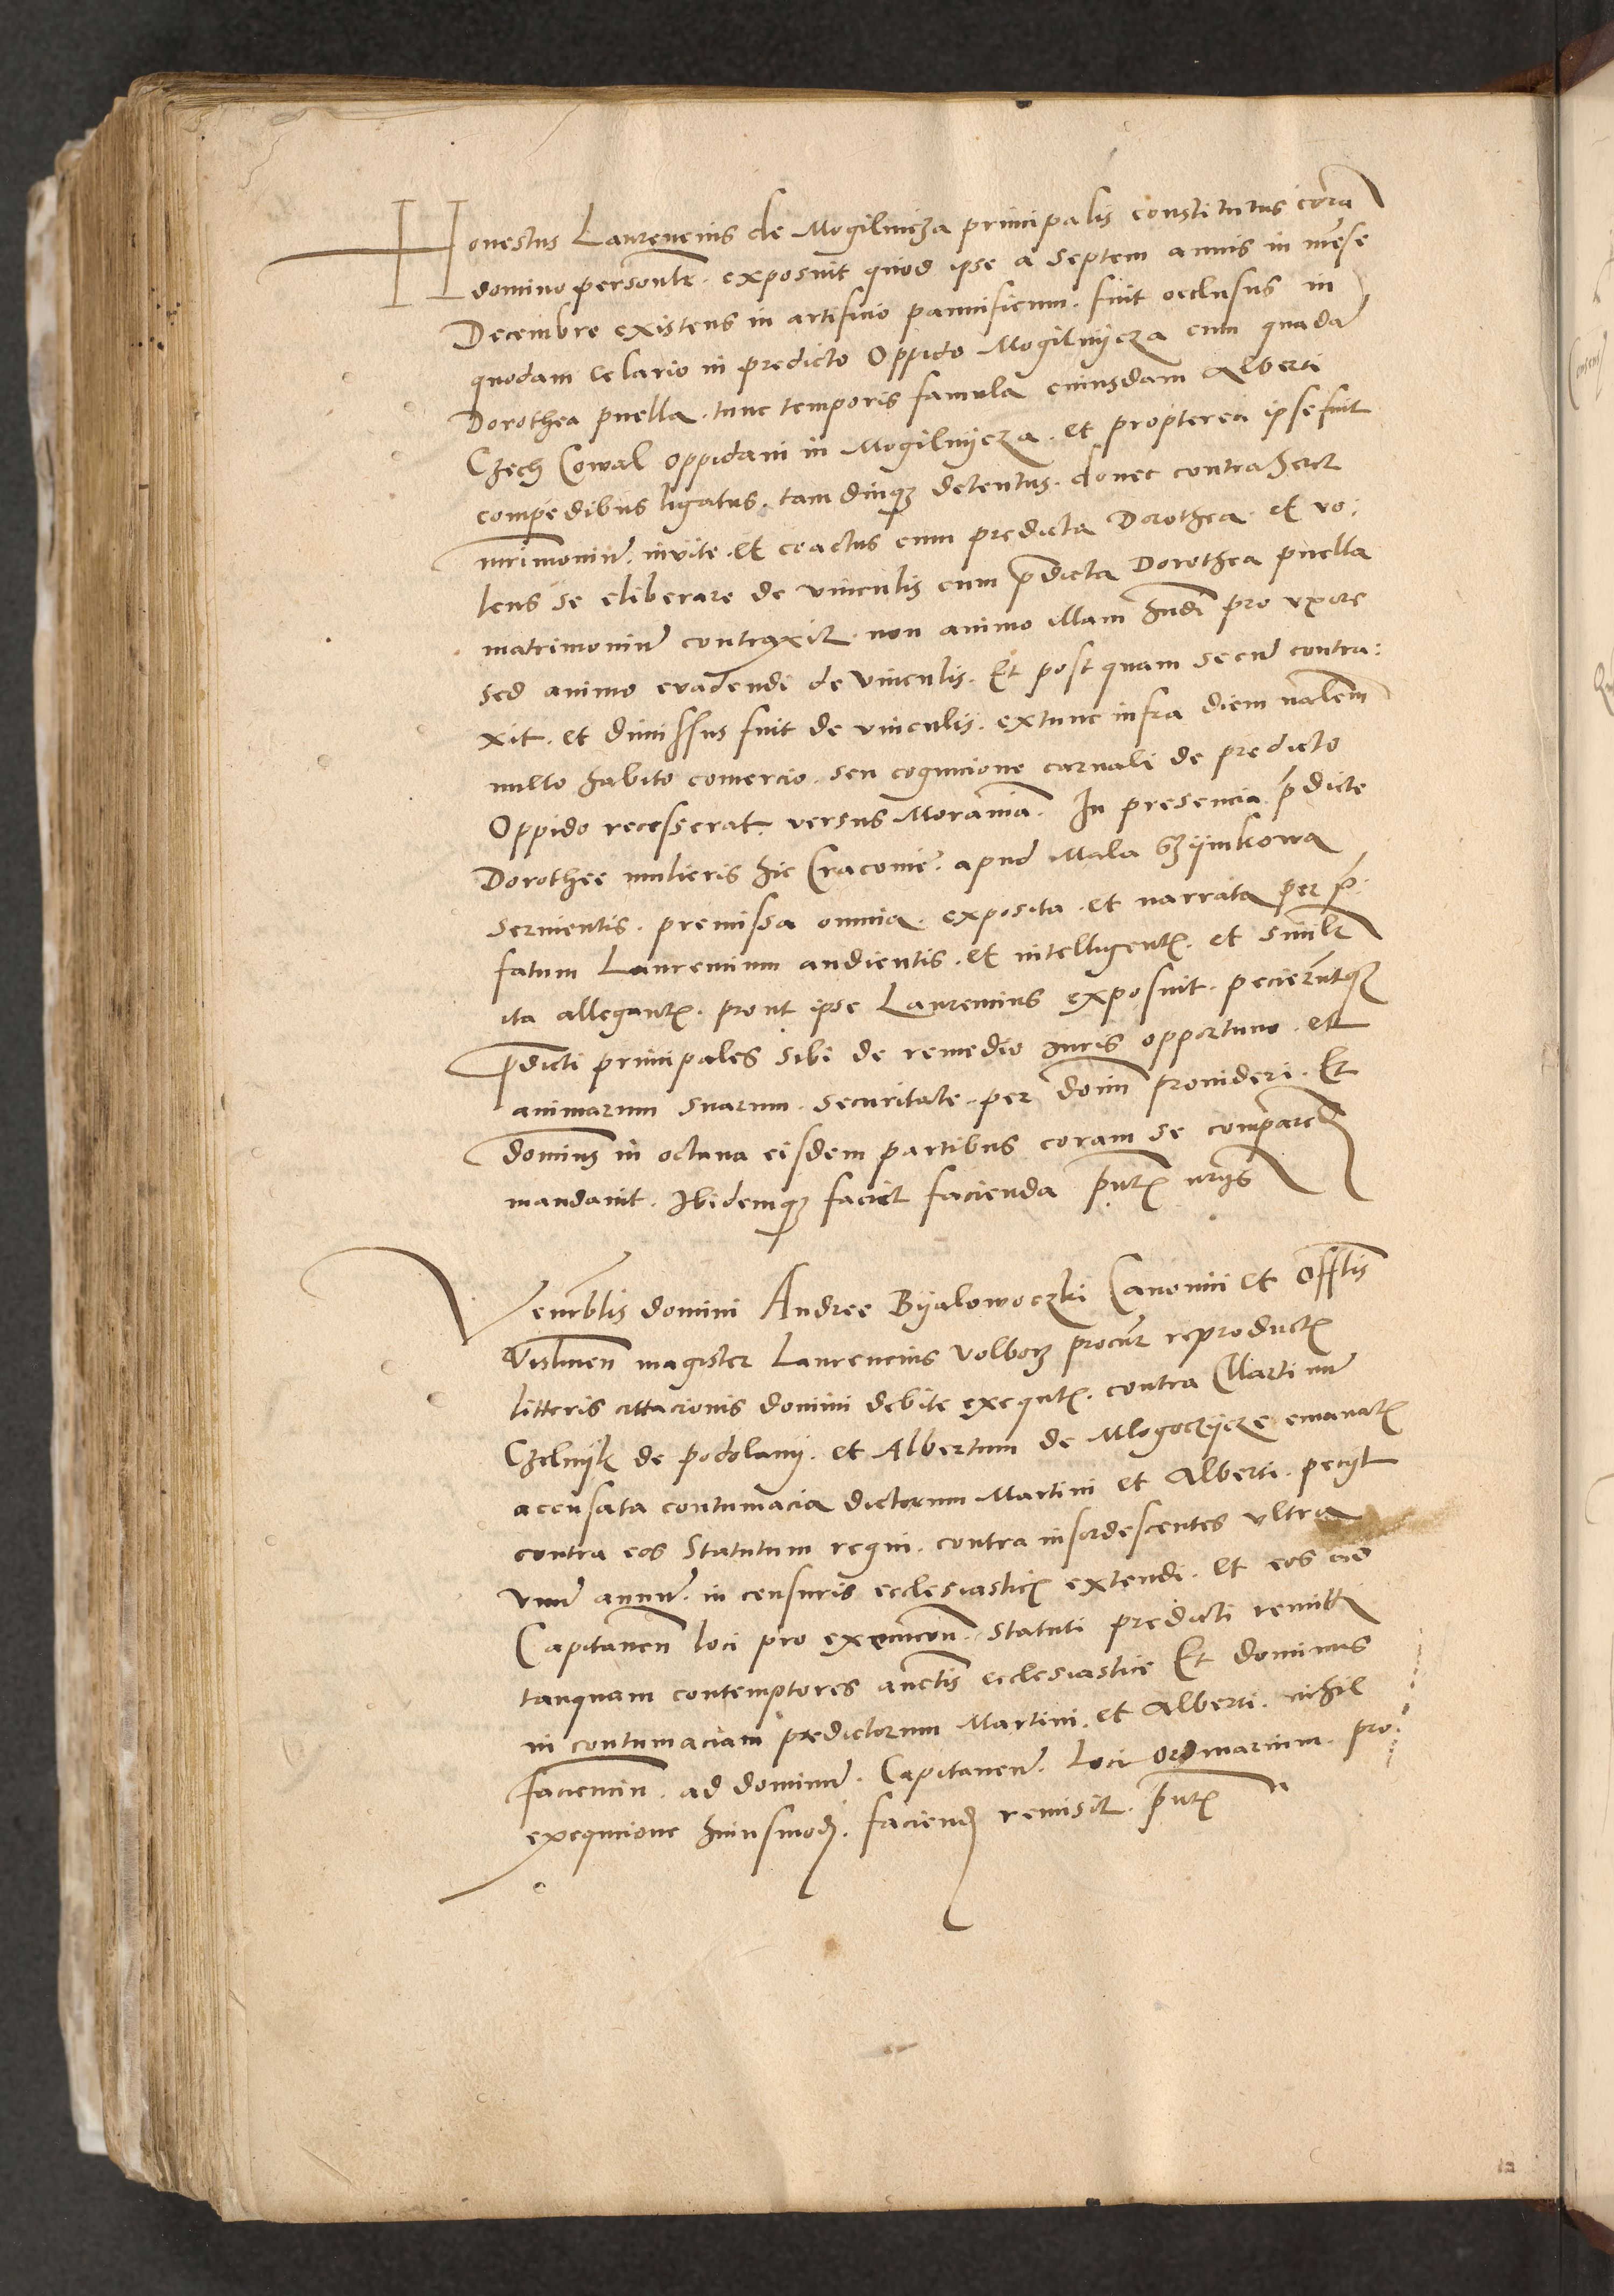 Honestus Laurencius de Mogilnicza principalis constitutus corã
domino personlr. exposuit quod ipse a septem annis in mẽse
Decembre existens in artificio pannificum. fuit occlusus in
quodam celario in predicto Oppido Mogilnijcza cum quadã
Dorothea puella. tunc temporis famula cuiusdam Alberti
Czech Cowal oppidani in Mogilnijcza. et propterea ipse fuit
compedibus ligatus. tam diuqz detentus. donec contraheret
mrimoniũ. invite. et coactus cum predicta Dorothea. et vo:
lens se eliberare de vinculis cum p̃dicta Dorothea puella
matrimoniũ contraxit. non animo illam hñdi pro vxore
sed animo evadendi de vinculis. Et post quam secũ contra:
xit. et dimissus fuit de vinculis. extunc infra diem nãlem
nullo habito comercio. seu cognicione carnali de predicto
Oppido recesserat. versus Moraviã. In presencia p̃dicte
Dorothee mulieris hic Cracovie. apud Mala Grzijmkowa
servientis. premissa omnia. exposita. et narrata per p̃:
fatum Laurencium audientis. et intelligent. et similr
ita allegant. prout ipse Laurencius exposuit. pecierũtqz
p̃dicti principales sibi de remedio iuris opportuno. et
animarum suarum. securitate. per dom̃ provideri. Et
dominus in octava eisdem partibus coram se comparere
mandavit. Ibidemqz faciet facienda p̃nt
Venerblis domini Andree Bijalowoczki Canonici et Offlis
Vislicien magister Laurencius Volborz procur reproduct
litteris cittacionis domini debite exequt. contra Martinũ
Czelnijk de podolany. et Albertum de Mlogoczijcze emanat
accusata contumacia dictorum Martini et Alberti. pecijt
contra eos Statutum regni. contra insordescentes vltra
vnũ annũ. in censuris ecclesiastic extendi. et eos ad
Capitaneũ loci pro execucion. Statuti predicti remitti
tanquam contemptores auctis ecclesiastice Et dominus
in contumaciam predictorum Martini. et Alberti. nihil
facienciũ. ad dominũ. Capitaneũ. loci Ordinarium. pro:
exequcione huiusmod. faciend remisit. p̃nt